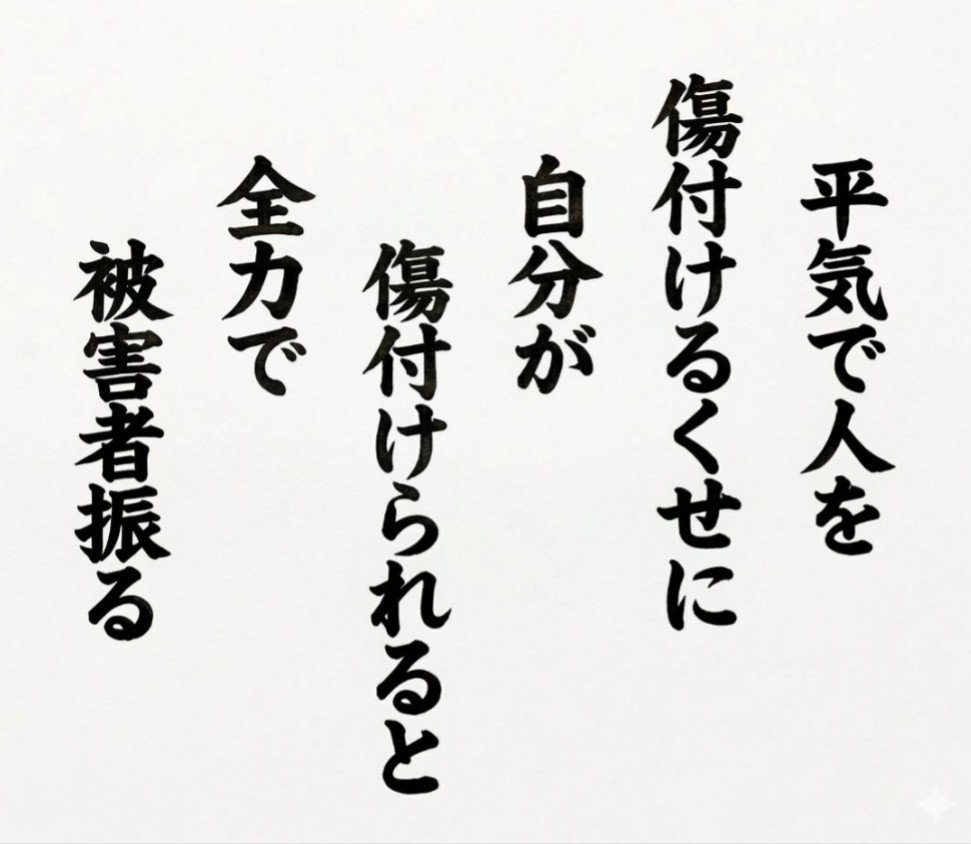 平気で人を
傷付けるくせに
自分が
傷付けられると
全力で
被害者振る